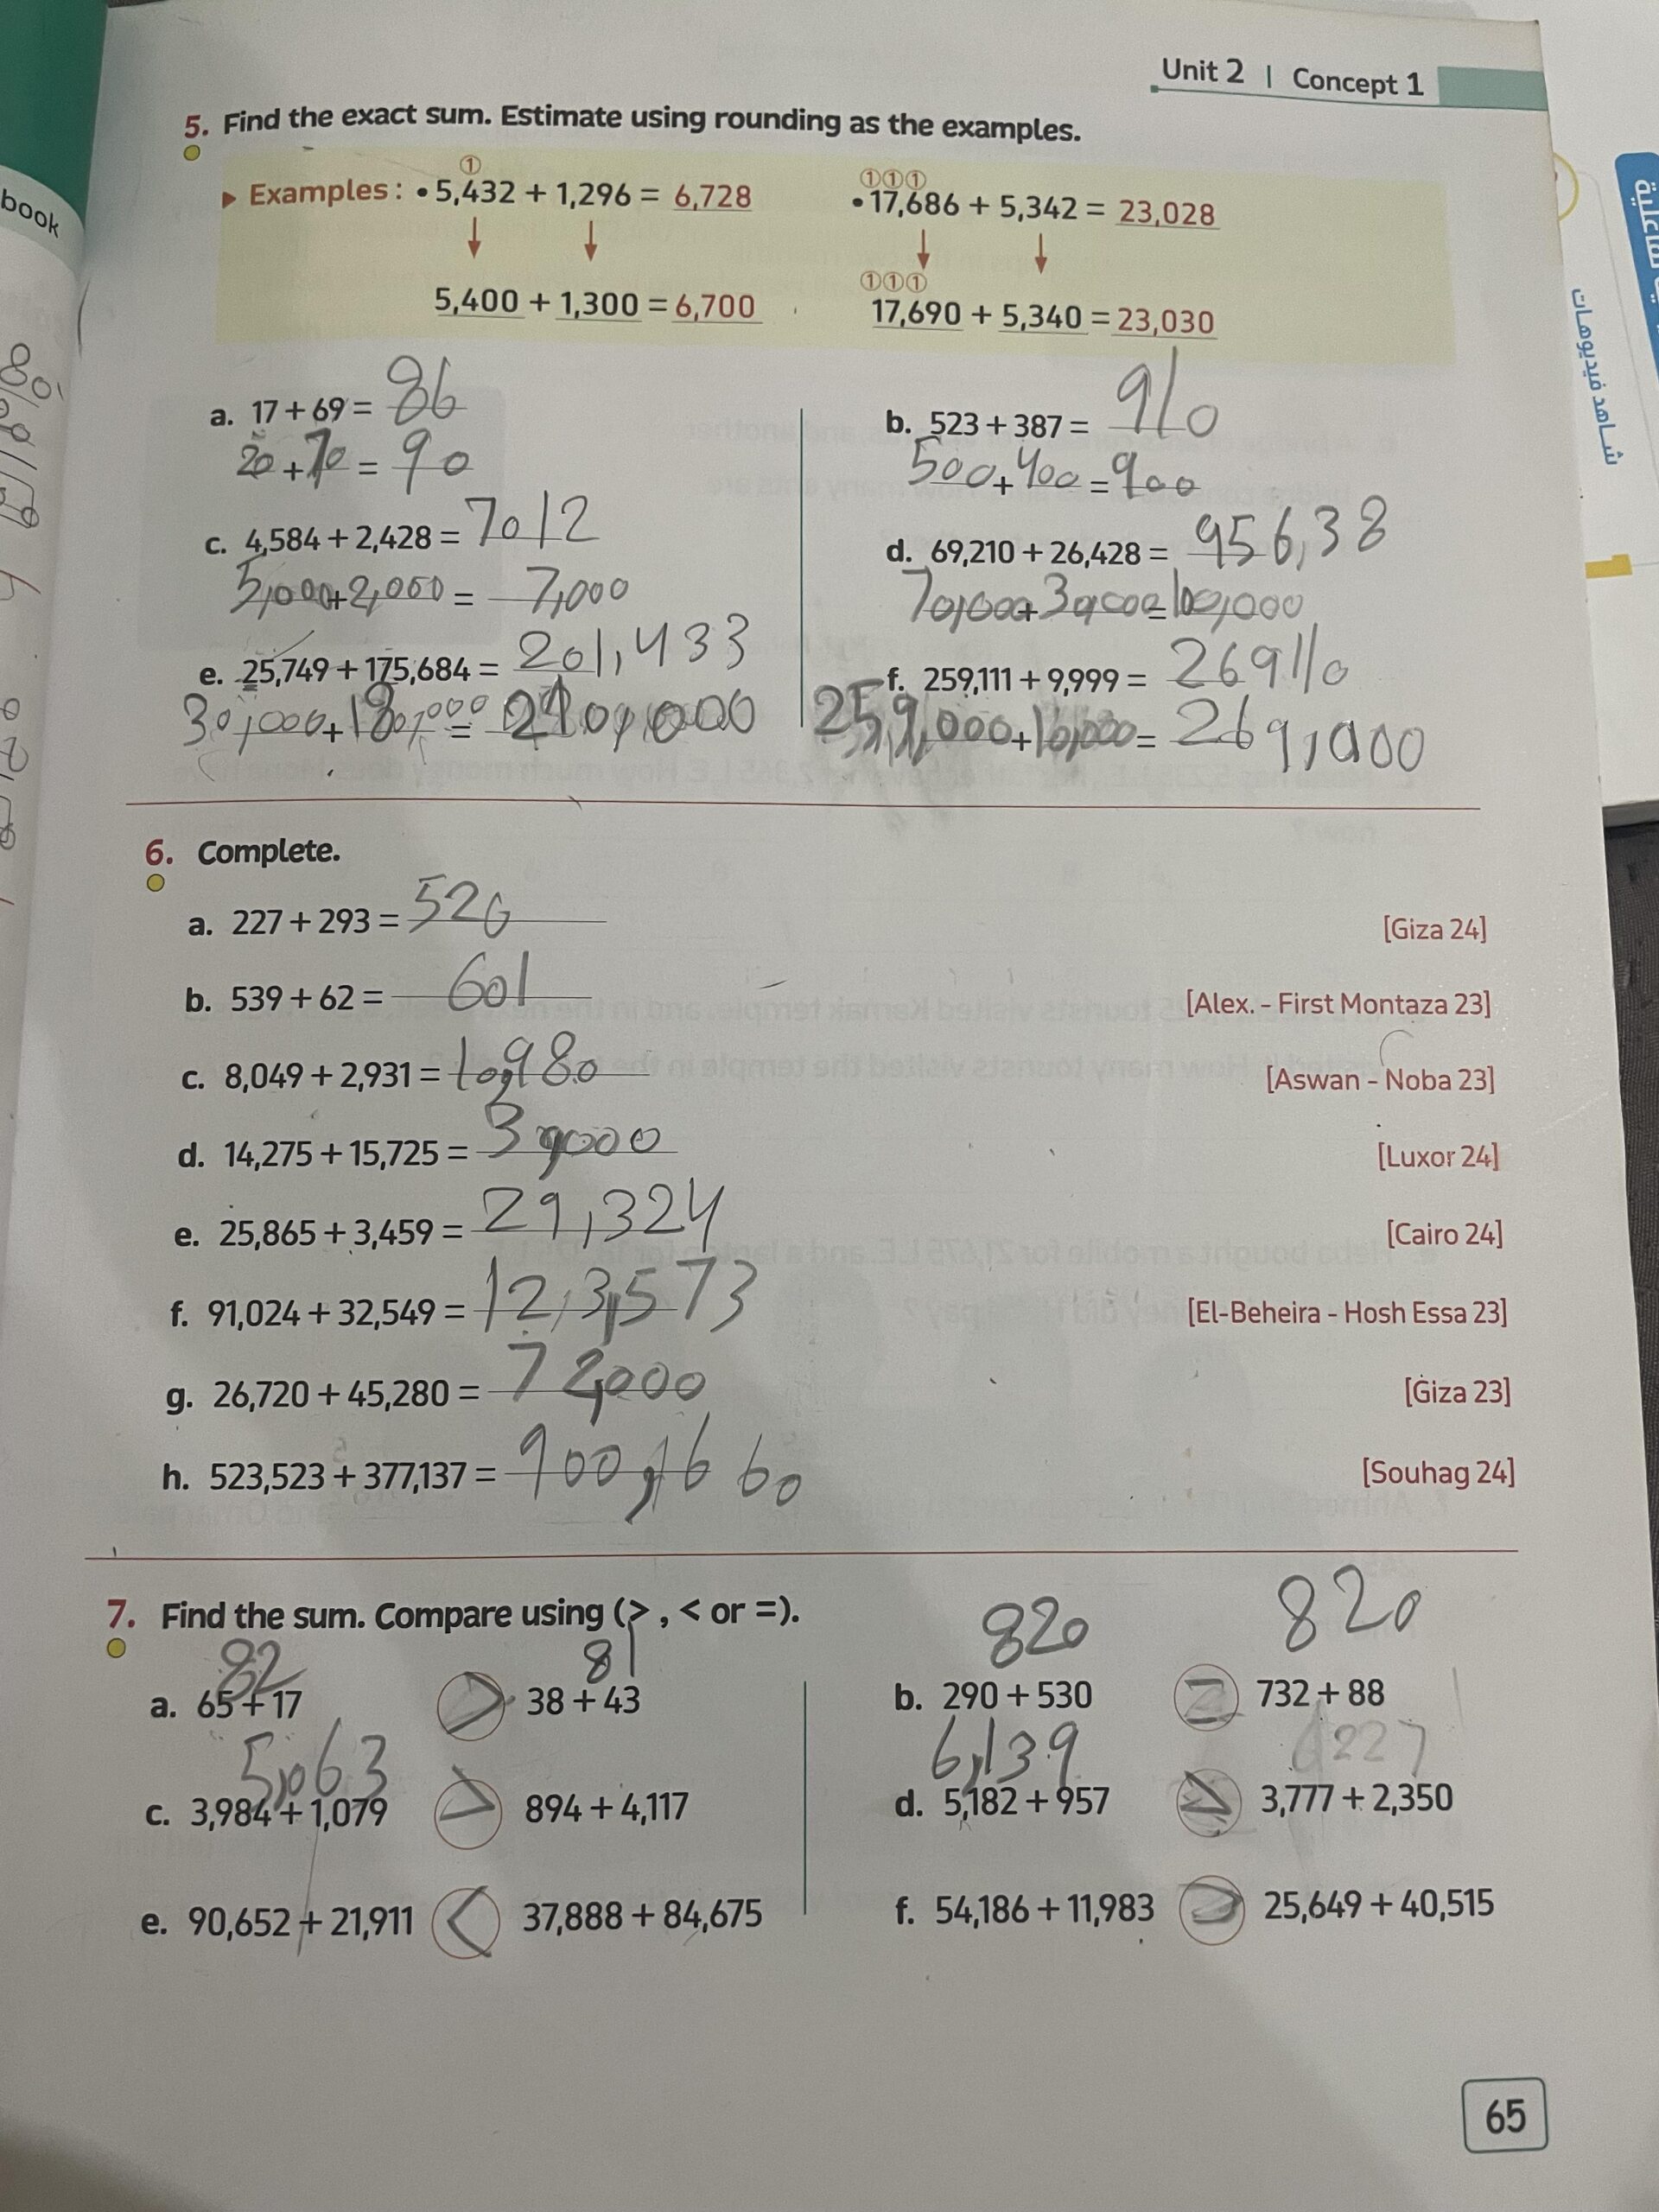 Unit 2 | Concept 1
5. Find the exact sum. Estimate using rounding as the examples.
① ①①①
▶ Examples : • 5,432 + 1,296 = 6,728 • 17,686 + 5,342 = 23,028
①①①
5,400 + 1,300 = 6,700 17,690 + 5,340 = 23,030
a. 17 + 69 = 86
20 + 70 = 90
b. 523 + 387 = 910
500 + 400 = 900
c. 4,584 + 2,428 = 7012
5,000 + 2,000 = 7,000
d. 69,210 + 26,428 = 956,38
70,000 + 30,000 = 100,000
e. 25,749 + 175,684 = 201,433
30,000 + 180,000 = 210,000
f. 259,111 + 9,999 = 269110
259,000 + 10,000 = 269,000
6. Complete.
a. 227 + 293 = 520 [Giza 24]
b. 539 + 62 = 601 [Alex. - First Montaza 23]
c. 8,049 + 2,931 = 10,980 [Aswan - Noba 23]
d. 14,275 + 15,725 = 30,000 [Luxor 24]
e. 25,865 + 3,459 = 29,324 [Cairo 24]
f. 91,024 + 32,549 = 12,3,573 [El-Beheira - Hosh Essa 23]
g. 26,720 + 45,280 = 72,000 [Giza 23]
h. 523,523 + 377,137 = 900,660 [Souhag 24]
7. Find the sum. Compare using (> , < or =).
82 81
a. 65 + 17 > 38 + 43
820 820
b. 290 + 530 = 732 + 88
5,063
c. 3,984 + 1,079 > 894 + 4,117
6,139
d. 5,182 + 957 > 3,777 + 2,350
e. 90,652 + 21,911 < 37,888 + 84,675
f. 54,186 + 11,983 > 25,649 + 40,515
65
book
شاهد فيديوهات